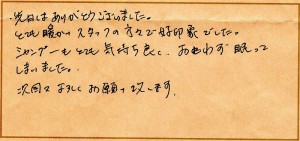 先日はありがとうございました。
とても暖かいスタッフの方々で好印象でした。
シャンプーもとても気持ち良く、おもわず眠って
しまいました。
次回もよろしくお願い致します。